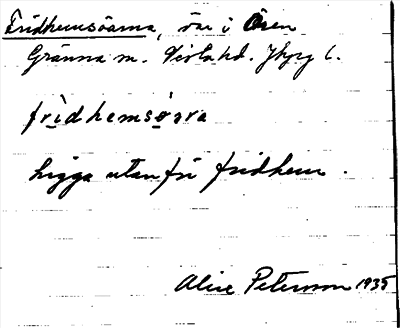 Fridhemsöarna, öar i Ören
Gränna m. Vista hd. Jkpg l.
fridhemsøara
ligga utanför fridhem.
Alice Peterson 1935